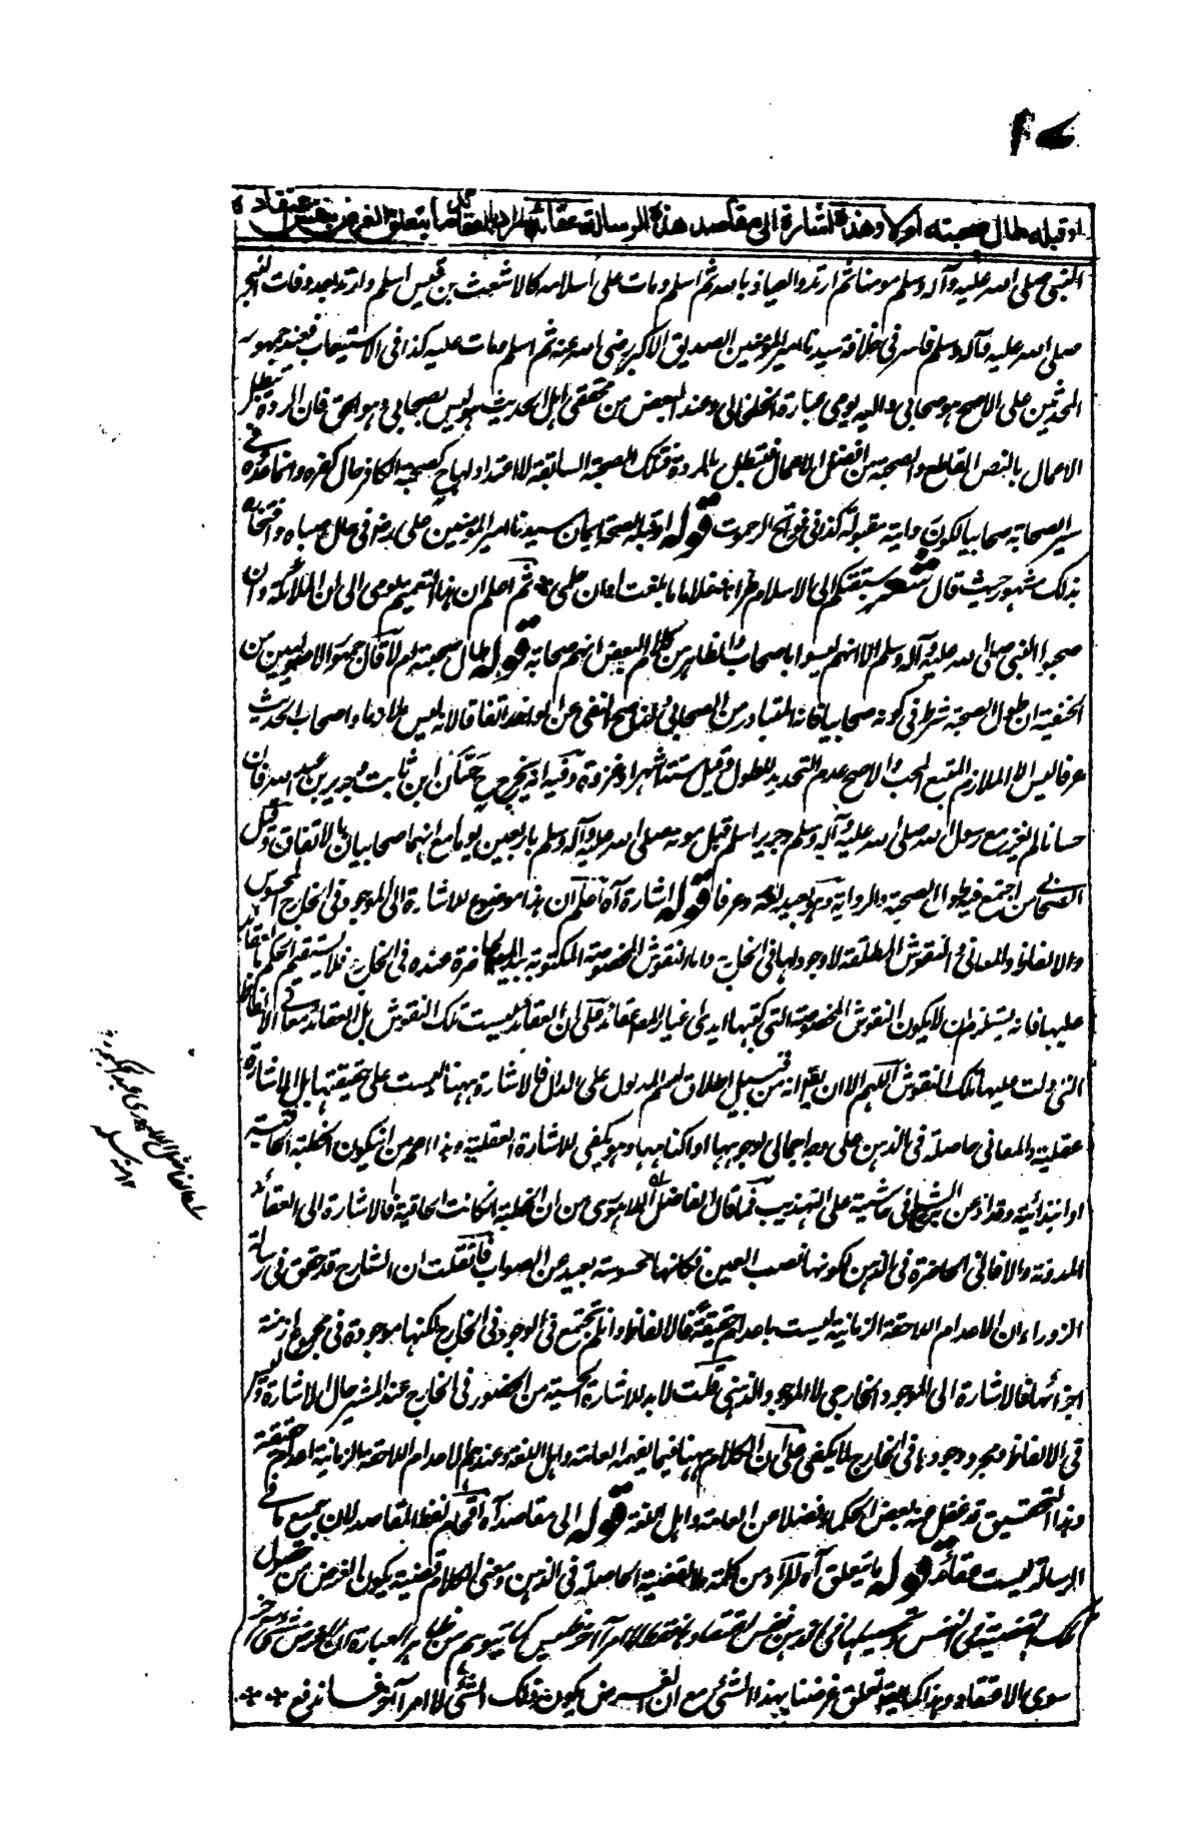 او قبله طال صحبته اولا وهذه اشارة الى مقاصد هذه الرسالة عقائد المراد بالعقائد ما يتعلق الغرض بنفس اعتقاده
النبي صلى الله عليه وآله وسلم مومنا ثم ارتد والعياذ بالله ثم اسلم ومات على اسلامه كالاشعث بن قيس اسلم وارتد بعد وفات النبي
صلى الله عليه وآله وسلم فاسر فى خلافة سيدنا امير المؤمنين الصديق الاكبر رضى الله عنه ثم اسلم ومات عليه كذا فى الاستيعاب فعند جمهور
المحدثين على الاصح هو صحابى واليه يومى عبارة الخلخالى وعند البعض من محققى اهل الحديث هو ليس بصحابى وهو الحق فان الردة تبطل
الاعمال بالنص القاطع والصحبة من افضل الاعمال فتبطل بالردة فتلك الصحبة السابقة لا اعتداد لها ح كصحبة الكافر حال كفره وانما عدّه فى
سير الصحابة صحابيا لكون رواية مقبولة كذا فى فواتح الرحموت قوله او قبله لصحة ايمان سيدنا امير المؤمنين على رض فى حال صباه وافتخاره
بذلك مشهور حيث قال شعر سبقتكم الى الاسلام طرا غلاما ما بلغت اوان حلمى ثم اعلم ان هذا التعميم يومى الى ان الملائكة وان
صحبوا النبى صلى الله عليه وآله وسلم الا انهم ليسوا باصحاب والظاهر من كلام البعض انهم صحابة قوله طال صحبته ام لا قال جمهور الاصوليين من
الحنفية ان طول الصحبة شرط فى كونه صحابيا فانه المتبادر من الصحابى ولذا صح النفى عن الوافد اتفاقا لانه ليس ملازما واصحاب الحديث
عرفا ليس الا الملازم المتبع المحب والاصح عدم التحديد للطول وقيل ستة اشهر او غزوة وفيه انه يخرج ح حسّان ابن ثابت وجرير بن عبد الله فان
حسانا لم يغز مع رسول الله صلى الله عليه وآله وسلم وجرير اسلم قبل موته صلى الله عليه وآله وسلم باربعين يوما مع انهما صحابيان بالاتفاق وقيل
الصحابى من اجتمع فيه طول الصحبة والرواية وهو بعيد لغة وعرفا قوله اشارة آه اعلم ان هذا موضوع للاشارة الى الموجود فى الخارج المحسوس
والالفاظ والمعانى والنقوش المطلقة لا وجود لها فى الخارج واما النقوش المخصوصة المكتوبة بيد المص حاضرة عنده فى الخارج فلا يستقيم الحكم بالعقائد
عليها فانه يستلزم ان لا يكون النقوش المخصوصة التى كتبها ايدى اغيار المص عقائد على ان العقائد ليست تلك النقوش بل العقائد معانى الالفاظ
التى دلت عليها تلك النقوش اللهم الا ان يقال انه من قبيل اطلاق اسم المدلول على الدال فالاشارة ههنا ليست على حقيقتها بل الاشارة
عقلية والمعانى حاصلة فى الذهن على وجه اجمالى لوجهها او اكناهها وهو يكفى للاشارة العقلية وهذا اعم من ان يكون الخطبة الحاقية
او ابتدائية وقد اذعن الشارح فى حاشية على التهذيب فما قال الفاضل اللاهورى من ان الخطبة ان كانت الحاقية فالاشارة الى العقائد
المدونة والا فالى الحاضرة فى الذهن لكونها نصب العين فكانها محسوسة بعيد عن الصواب فان قلت ان الشارح قد حقق فى رسالة
الزوراء ان الاعدام اللاحقة الزمانية ليست باعدام حقيقة فالالفاظ وان لم تجتمع فى الوجود فى الخارج لكنها موجودة فى مجموع ازمنة
اجزائها فالاشارة الى الموجود الخارجى لا الموجود الذهنى قلت لا بد للاشارة الحسية من الحضور فى الخارج عند المشير حال الاشارة وليس
فى الالفاظ ومجرد وجودها فى الخارج لا يكفى على ان الكلام ههنا فيما يفهمه العامة واهل اللغة وعندهم الاعدام اللاحقة الزمانية اعدام حقيقة
وهذا التحقيق قد غفل عنه بعض الحكماء فضلا من العامة واهل اللغة قوله الى مقاصد آه اقحام لفظ المقاصد لان جميع ما فى
الرسالة ليست عقائد قوله ما يتعلق آه المراد من كلمة ما القضية الحاصلة فى الذهن ومعنى الكلام قضية يكون الغرض من حصول
تلك القضية فى النفس وتحصيلها فى الذهن نفس اعتقاده فقط لا امر آخر فليس كما يتوهم من ظاهر العبارة ان الغرض شئ آخر
سوى الاعتقاد وهذا كما يقال تعلق غرضنا بهذا الشئ مع ان الغرض يكون ذلك الشئ لا امرا آخر فاندفع